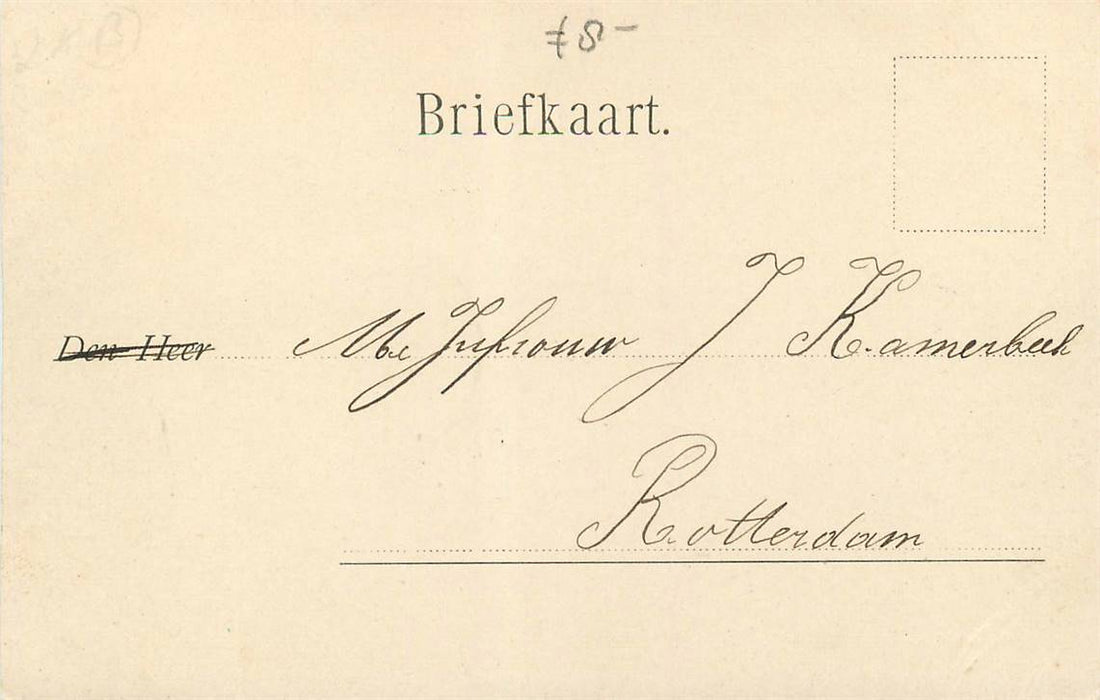 Briefkaart.
Den Heer Mej Jufrouw J Kamerbeek
Rotterdam